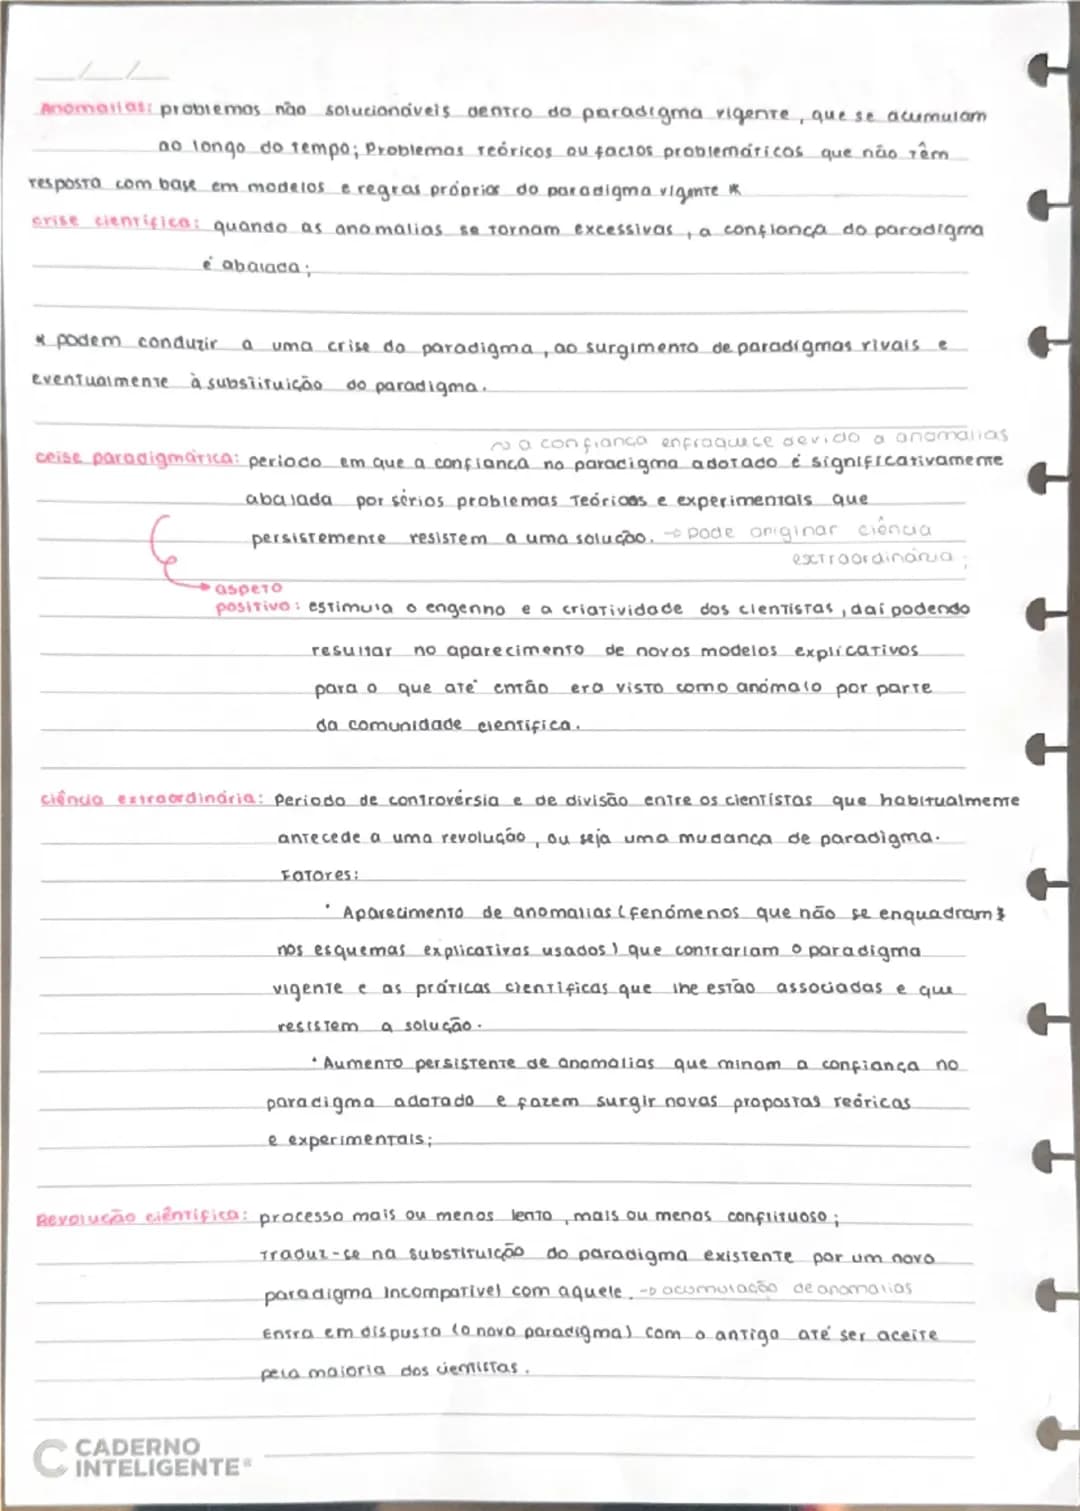 Anomalias: problemas não solucionáveis dentro do paradigma vigente, que se acumulam
ao longo do tempo; Problemas teóricos ou factos problemáticos que não têm
resposta com base em modelos e regras próprias do paradigma vigente *
crise científica: quando as anomalias se tornam excessivas, a confiança do paradigma
é abalada;
* podem conduzir a uma crise do paradigma, ao surgimento de paradigmas rivais e
eventualmente à substituição do paradigma.
~> a confiança enfraquece devido a anomalias
ceise paradigmática: período em que a confiança no paradigma adotado é significativamente
abalada por sérios problemas teóricos e experimentais que
persistemente resistem a uma solução. -> pode originar ciência
extraordinária;
aspeto
positivo: estimula o engenho e a criatividade dos cientistas, daí podendo
resultar no aparecimento de novos modelos explicativos
para o que até então era visto como anómalo por parte
da comunidade científica.
ciência extraordinária: Período de controvérsia e de divisão entre os cientistas que habitualmente
antecede a uma revolução, ou seja uma mudança de paradigma.
Fatores:
· Aparecimento de anomalias (fenómenos que não se enquadram
nos esquemas explicativos usados) que contrariam o paradigma
vigente e as práticas científicas que lhe estão associadas e que
resistem a solução.
· Aumento persistente de anomalias que minam a confiança no
paradigma adotado e fazem surgir novas propostas teóricas
e experimentais;
Revolução científica: processo mais ou menos lento, mais ou menos conflituoso;
Traduz-se na substituição do paradigma existente por um novo
paradigma incompatível com aquele. -> acumulação de anomalias
Entra em dispusta (o novo paradigma) com o antigo até ser aceite
pela maioria dos cientistas.
CADERNO
INTELIGENTE®